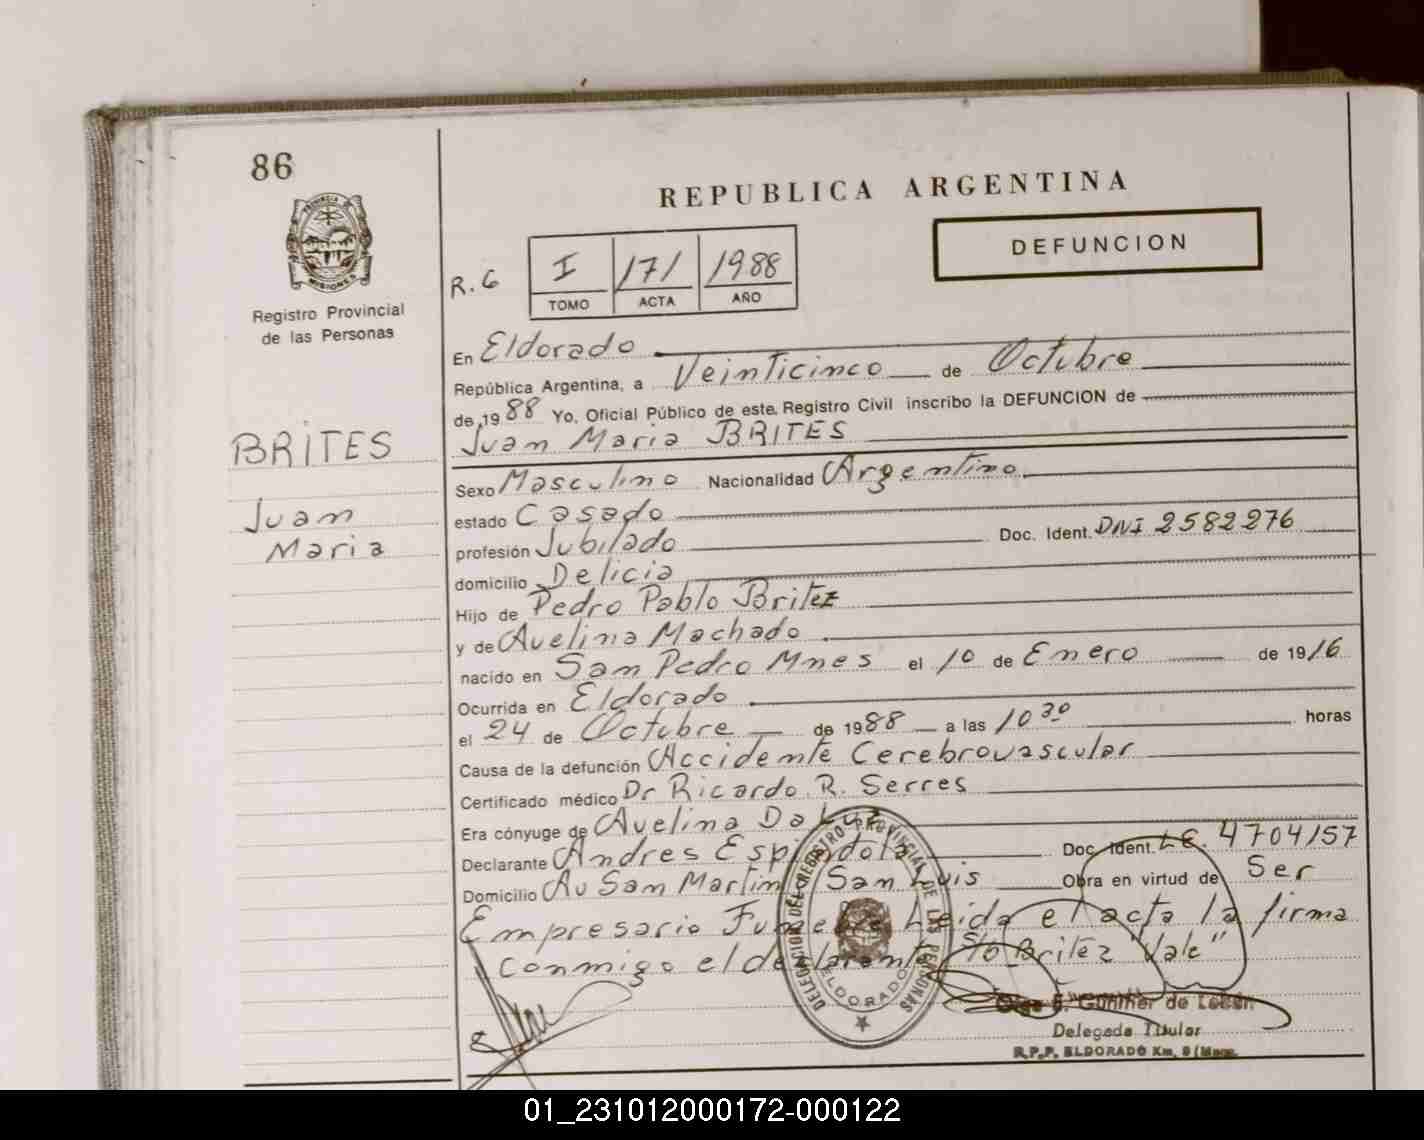 86
PROVINCIA DE
MISIONES
Registro Provincial
de las Personas
BRITES
Juan
Maria
REPUBLICA ARGENTINA
DEFUNCION
R. G
I 171 1988
TOMO ACTA AÑO
En Eldorado
República Argentina, a Veinticinco de Octubre
de 1988 Yo, Oficial Público de este Registro Civil inscribo la DEFUNCION de
Juan Maria BRITES
Sexo Masculino Nacionalidad Argentino
estado Casado
profesión Jubilado Doc. Ident. DNI 2582276
domicilio Delicia
Hijo de Pedro Pablo Britez
y de Avelina Machado
nacido en San Pedro Mnes el 10 de Enero de 1916
Ocurrida en Eldorado
el 24 de Octubre de 1988 a las 10 30 horas
Causa de la defunción Accidente Cerebrovascular
Certificado médico Dr Ricardo R. Serres
Era cónyuge de Avelina Da Luz
Declarante Andres Espindola Doc. Ident. L.E. 4704157
Domicilio Av San Martin San Luis Obra en virtud de Ser
Empresario Funebre Leida el acta la firma
conmigo el declarante S/b Britez "Vale"
DELEGACION DEL REGISTRO PROVINCIAL DE LAS PERSONAS
ELDORADO
Gunther de
Delegada Titular
R.P.P. ELDORADO Km. 9 (Mnes.
01_231012000172-000122